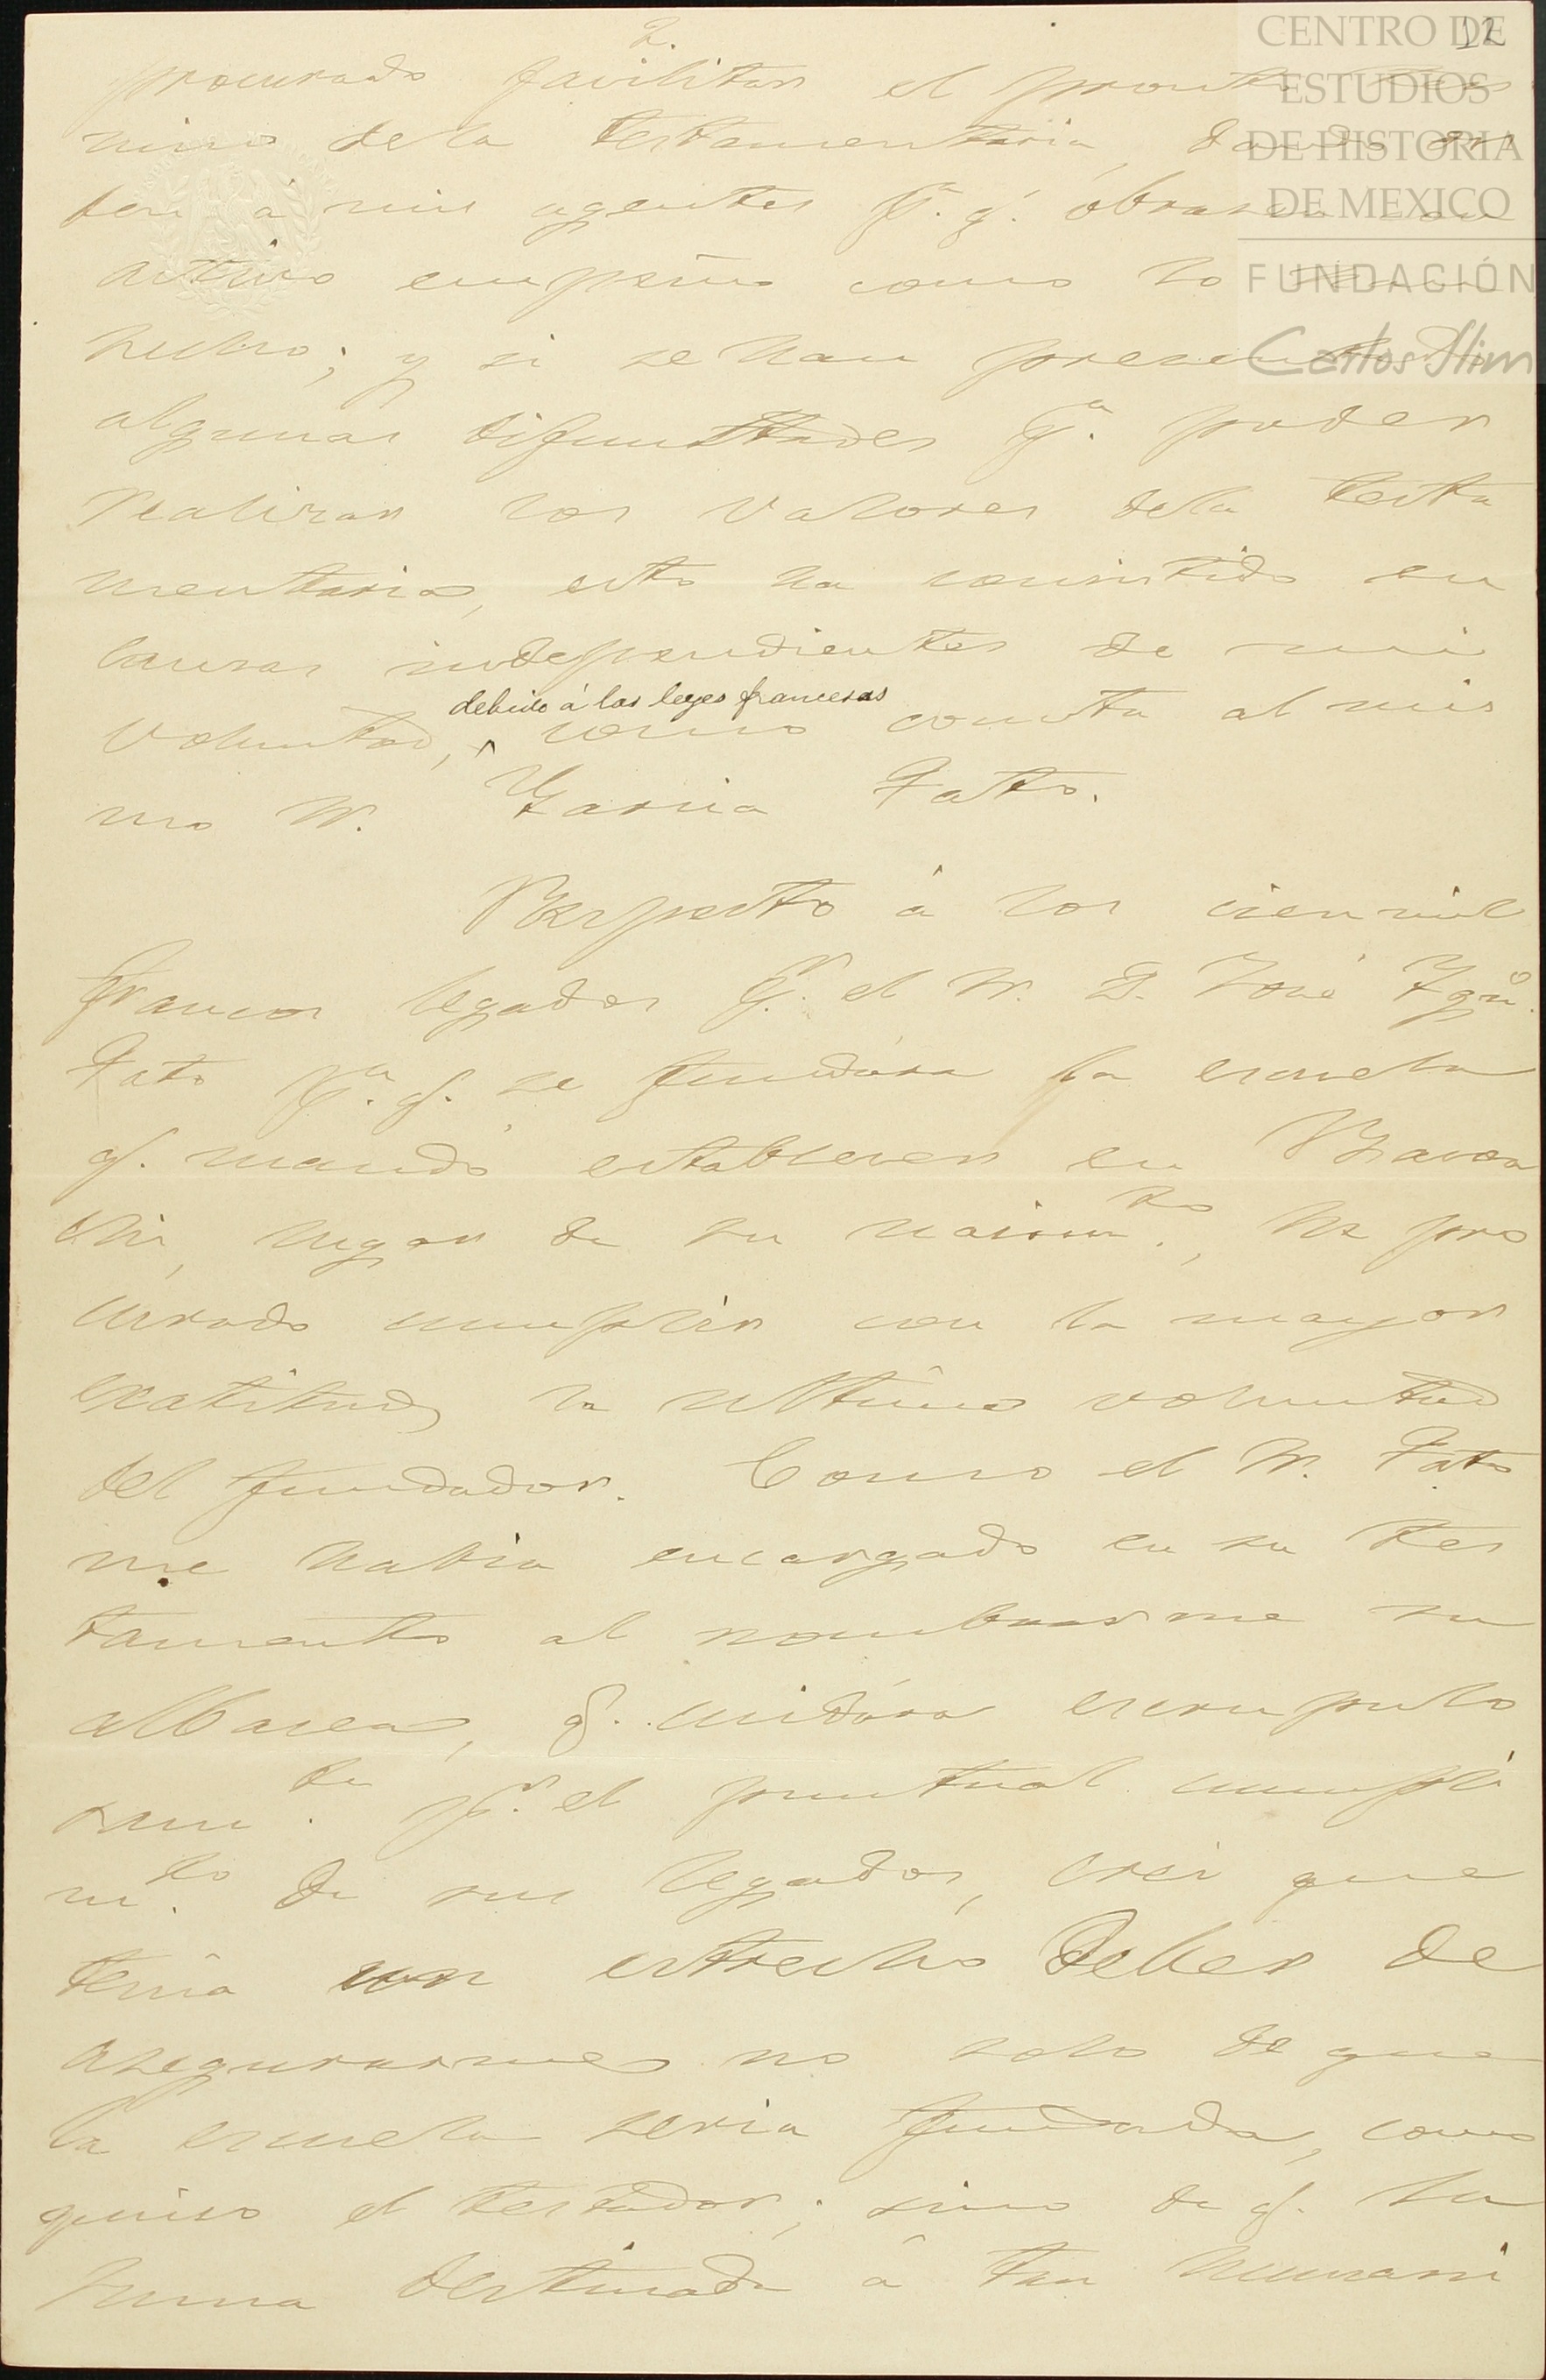 2.
12
CENTRO DE
ESTUDIOS
DE HISTORIA
DE MEXICO
FUNDACIÓN
Carlos Slim
procurado facilitar el pronto ter
mino de la testamentaria, dando or
den á mis agentes pª. q. obrasen con
activo empeño como lo han
hecho; y si se han presentado
algunas dificultades pª. poder
realizar los valores de la testa
mentaria, esto ha consistido en
causas independientes de mi
debido á las leyes francesas
voluntad, ^ como consta al mis
mo Sr. Garcia Tato.
Respecto á los cien mil
francos legados pr. el Sr. D. José Igno.
Tato pª. q. se fundára la escuela
q. mandó establecer en
lugar de su nacimto., he pro
curado cumplir con la mayor
exatitud, la ultima voluntad
del fundador. Como el Sr. Tato
me habia encargado en su tes
tamento al nombrarme su
albacea, q. cuidára escrupulo
samte. pr. el puntual cumpli
mto. de sus legados, crei que
tenia un estrecho deber de
asegurarme no solo de que
la escuela seria fundada, como
quiso el testador; sino de q. la
suma destinada á tan humani